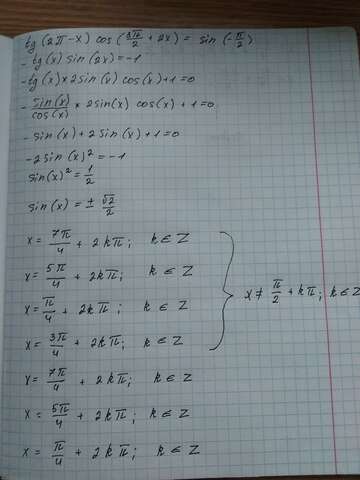 tg (2π-x) cos (3π/2 + 2x) = sin (-π/2)
- tg(x) sin (2x) = -1
- tg(x) × 2sin (x) cos(x) + 1 = 0
- sin(x)/cos(x) × 2sin(x) cos(x) + 1 = 0
- sin(x) + 2 sin(x) + 1 = 0
-2 sin (x)² = -1
sin(x)² = 1/2
sin (x) = ± √2/2
x = 7π/4 + 2kπ; k ∈ Z
x = 5π/4 + 2kπ; k ∈ Z
x = π/4 + 2kπ; k ∈ Z
x = 3π/4 + 2kπ; k ∈ Z
x ≠ π/2 + kπ; k ∈ Z
x = 7π/4 + 2kπ; k ∈ Z
x = 5π/4 + 2kπ; k ∈ Z
x = π/4 + 2kπ; k ∈ Z